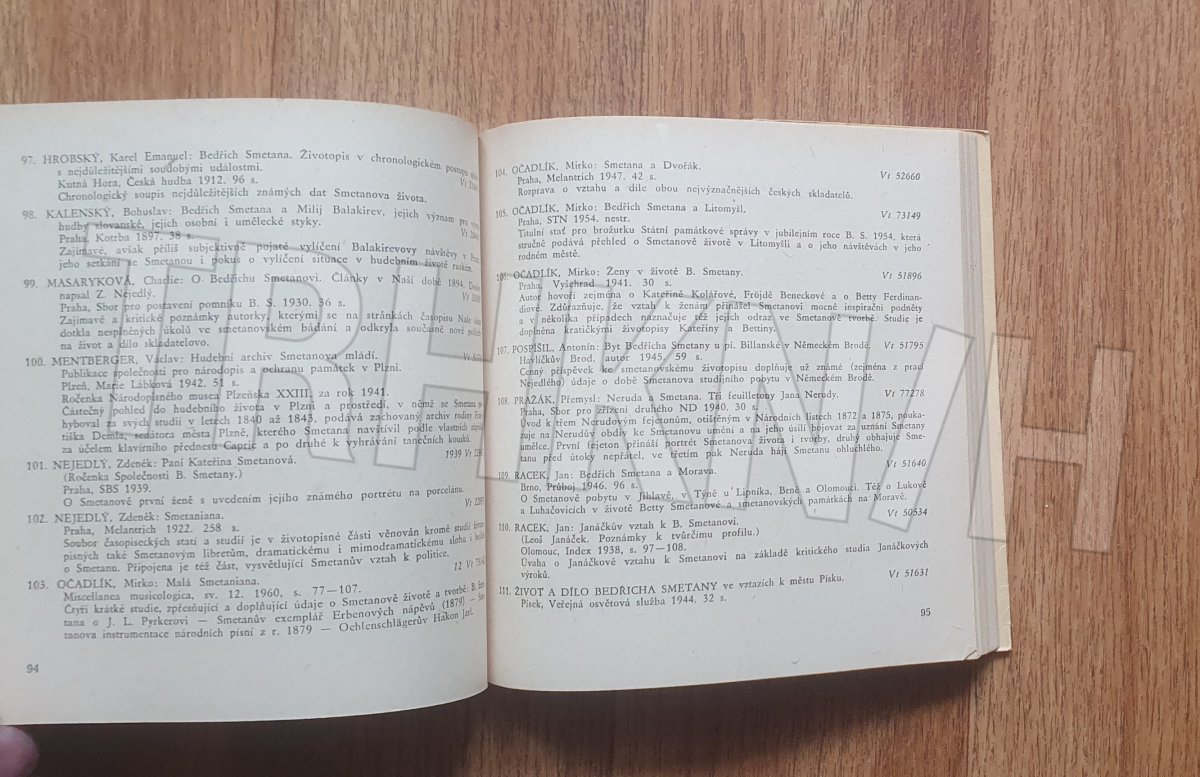 97. HROBSKÝ, Karel Emanuel: Bedřich Smetana. Životopis v chronologickém postupu
s nejdůležitějšími soudobými událostmi.
Kutná Hora, Česká hudba 1912. 96 s.
Chronologický soupis nejdůležitějších známých dat Smetanova života.
98. KALENSKÝ, Bohuslav: Bedřich Smetana a Milij Balakirev, jejich význam pro
hudby slovanské, jejich osobní i umělecké styky.
Praha, Kotrba 1897. 38 s.
Zajímavé, avšak příliš subjektivně pojaté vylíčení Balakirevovy návštěvy v
jeho setkání se Smetanou i pokus o vylíčení situace v hudebním životě ruském.
99. MASARYKOVÁ, Charlie: O Bedřichu Smetanovi. Články v Naší době 1894.
napsal Z. Nejedlý.
Praha, Sbor pro postavení pomníku B. S. 1930. 36 s.
Zajímavé a kritické poznámky autorky, kterými se na stránkách časopisu Naše
dotkla nesplněných úkolů ve smetanovském bádání a odkryla současně nové
na život a dílo skladatelovo.
100. MENTBERGER, Václav: Hudební archiv Smetanova mládí.
Publikace společnosti pro národopis a ochranu památek v Plzni.
Plzeň, Marie Lábková 1942. 51 s.
Ročenka Národopisného musea Plzeňska XXIII. za rok 1941.
Částečný pohled do hudebního života v Plzni a prostředí, v němž se Smetana
hyboval za svých studií v letech 1840 až 1843, podává zachovaný archiv rodiny
tiška Demla, senátora města Plzně, kterého Smetana navštívil podle vlastních
za účelem klavírního přednesu Capric a po druhé k vyhrávání tanečních kousků.
101. NEJEDLÝ, Zdeněk: Paní Kateřina Smetanová. 1939 Vt
(Ročenka Společnosti B. Smetany.)
Praha, SBS 1939.
O Smetanově první ženě s uvedením jejího známého portrétu na porcelánu.
102. NEJEDLÝ, Zdeněk: Smetaniana.
Praha, Melantrich 1922. 258 s.
Soubor časopiseckých statí a studií je v životopisné části věnován kromě studií
pisných také Smetanovým libretům, dramatickému i mimodramatickému slohu i
o Smetanu. Připojena je též část, vysvětlující Smetanův vztah k politice.
103. OČADLÍK, Mirko: Malá Smetaniana. 12 Vt
Miscellanea musicologica, sv. 12. 1960, s. 77—107.
Čtyři krátké studie, zpřesňující a doplňující údaje o Smetanově životě a tvorbě: B.
tana o J. L. Pyrkerovi — Smetanův exemplář Erbenových nápěvů (1879) —
tanova instrumentace národních písní z r. 1879 — Oehlenschlägerův Hakon Jarl.
94
104. OČADLÍK, Mirko: Smetana a Dvořák.
Praha, Melantrich 1947. 42 s. Vt 52660
Rozprava o vztahu a díle obou nejvýznačnějších českých skladatelů.
105. OČADLÍK, Mirko: Bedřich Smetana a Litomyšl.
Praha, STN 1954. nestr. Vt 73149
Titulní stať pro brožurku Státní památkové správy v jubilejním roce B. S. 1954, která
stručně podává přehled o Smetanově životě v Litomyšli a o jeho návštěvách v jeho
rodném městě.
106. OČADLÍK, Mirko: Ženy v životě B. Smetany. Vt 51896
Praha, Vyšehrad 1941. 30 s.
Autor hovoří zejména o Kateřině Kolářové, Fröjdě Beneckové a o Betty Ferdinan-
diové. Zdůrazňuje, že vztah k ženám přinášel Smetanovi mocné inspirační podněty
a v několika případech naznačuje též jejich odraz ve Smetanově tvorbě. Studie je
doplněna kratičkými životopisy Kateřiny a Bettiny.
107. POSPÍŠIL, Antonín: Byt Bedřicha Smetany u pí. Billanské v Německém Brodě. Vt 51795
Havlíčkův Brod. autor 1945. 59 s.
Cenný příspěvek ke smetanovskému životopisu doplňuje už známé (zejména z prací
Nejedlého) údaje o době Smetanova studijního pobytu v Německém Brodě.
108. PRAŽÁK, Přemysl: Neruda a Smetana. Tři feuilletony Jana Nerudy. Vt 77278
Praha, Sbor pro zřízení druhého ND 1940. 30 s.
Úvod k třem Nerudovým fejetonům, otištěným v Národních listech 1872 a 1875, pouka-
zuje na Nerudův obdiv ke Smetanovu umění a na jeho úsilí bojovat za uznání Smetany
umělce. První fejeton přináší portrét Smetanova života i tvorby, druhý obhajuje Sme-
tanu před útoky nepřátel, ve třetím pak Neruda hájí Smetanu ohluchlého.
109. RACEK, Jan: Bedřich Smetana a Morava. Vt 51640
Brno, Průboj 1946. 96 s.
O Smetanově pobytu v Jihlavě, v Týně u Lipníka, Brně a Olomouci. Též o Lukově
a Luhačovicích v životě Betty Smetanové a smetanovských památkách na Moravě.
110. RACEK, Jan: Janáčkův vztah k B. Smetanovi. Vt 50534
(Leoš Janáček. Poznámky k tvůrčímu profilu.)
Olomouc, Index 1938, s. 97—108.
Úvaha o Janáčkově vztahu k Smetanovi na základě kritického studia Janáčkových
výroků.
111. ŽIVOT A DÍLO BEDŘICHA SMETANY ve vztazích k městu Písku. Vt 51631
Písek, Veřejná osvětová služba 1944. 32 s.
95
TRHKNIH